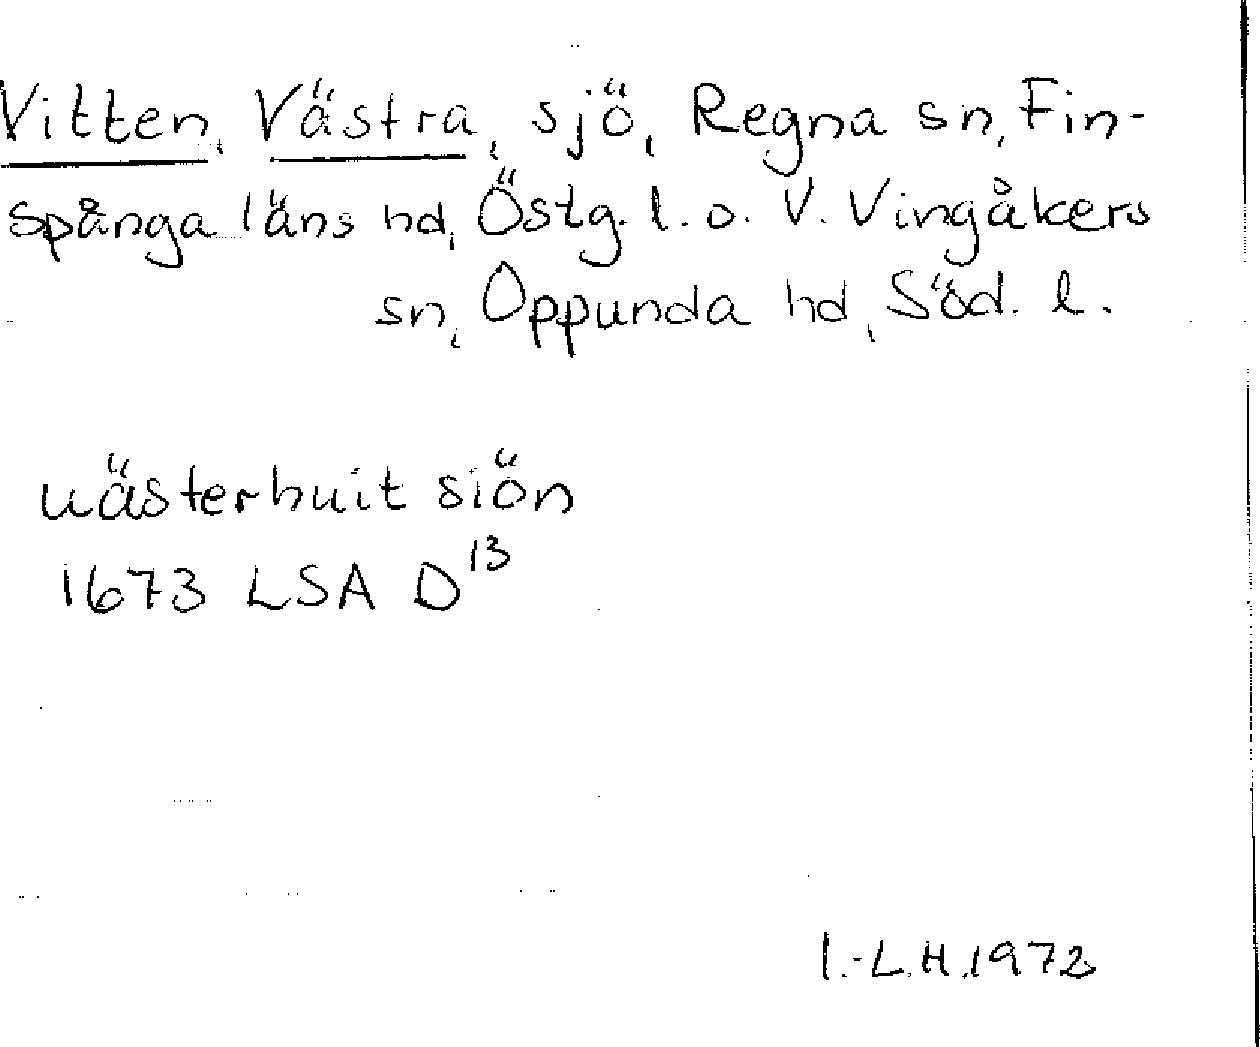 Vitten, Västra, sjö, Regna sn, Fin-
spånga läns hd, Östg. l. o. V. Vingåkers
sn, Oppunda hd, Söd. l.
uästerhuit siön
1673 LSA D¹³
I.-L.H.1972